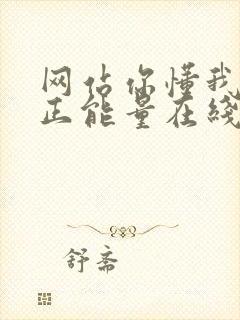 网估你懂我
正能量在线
舒斋